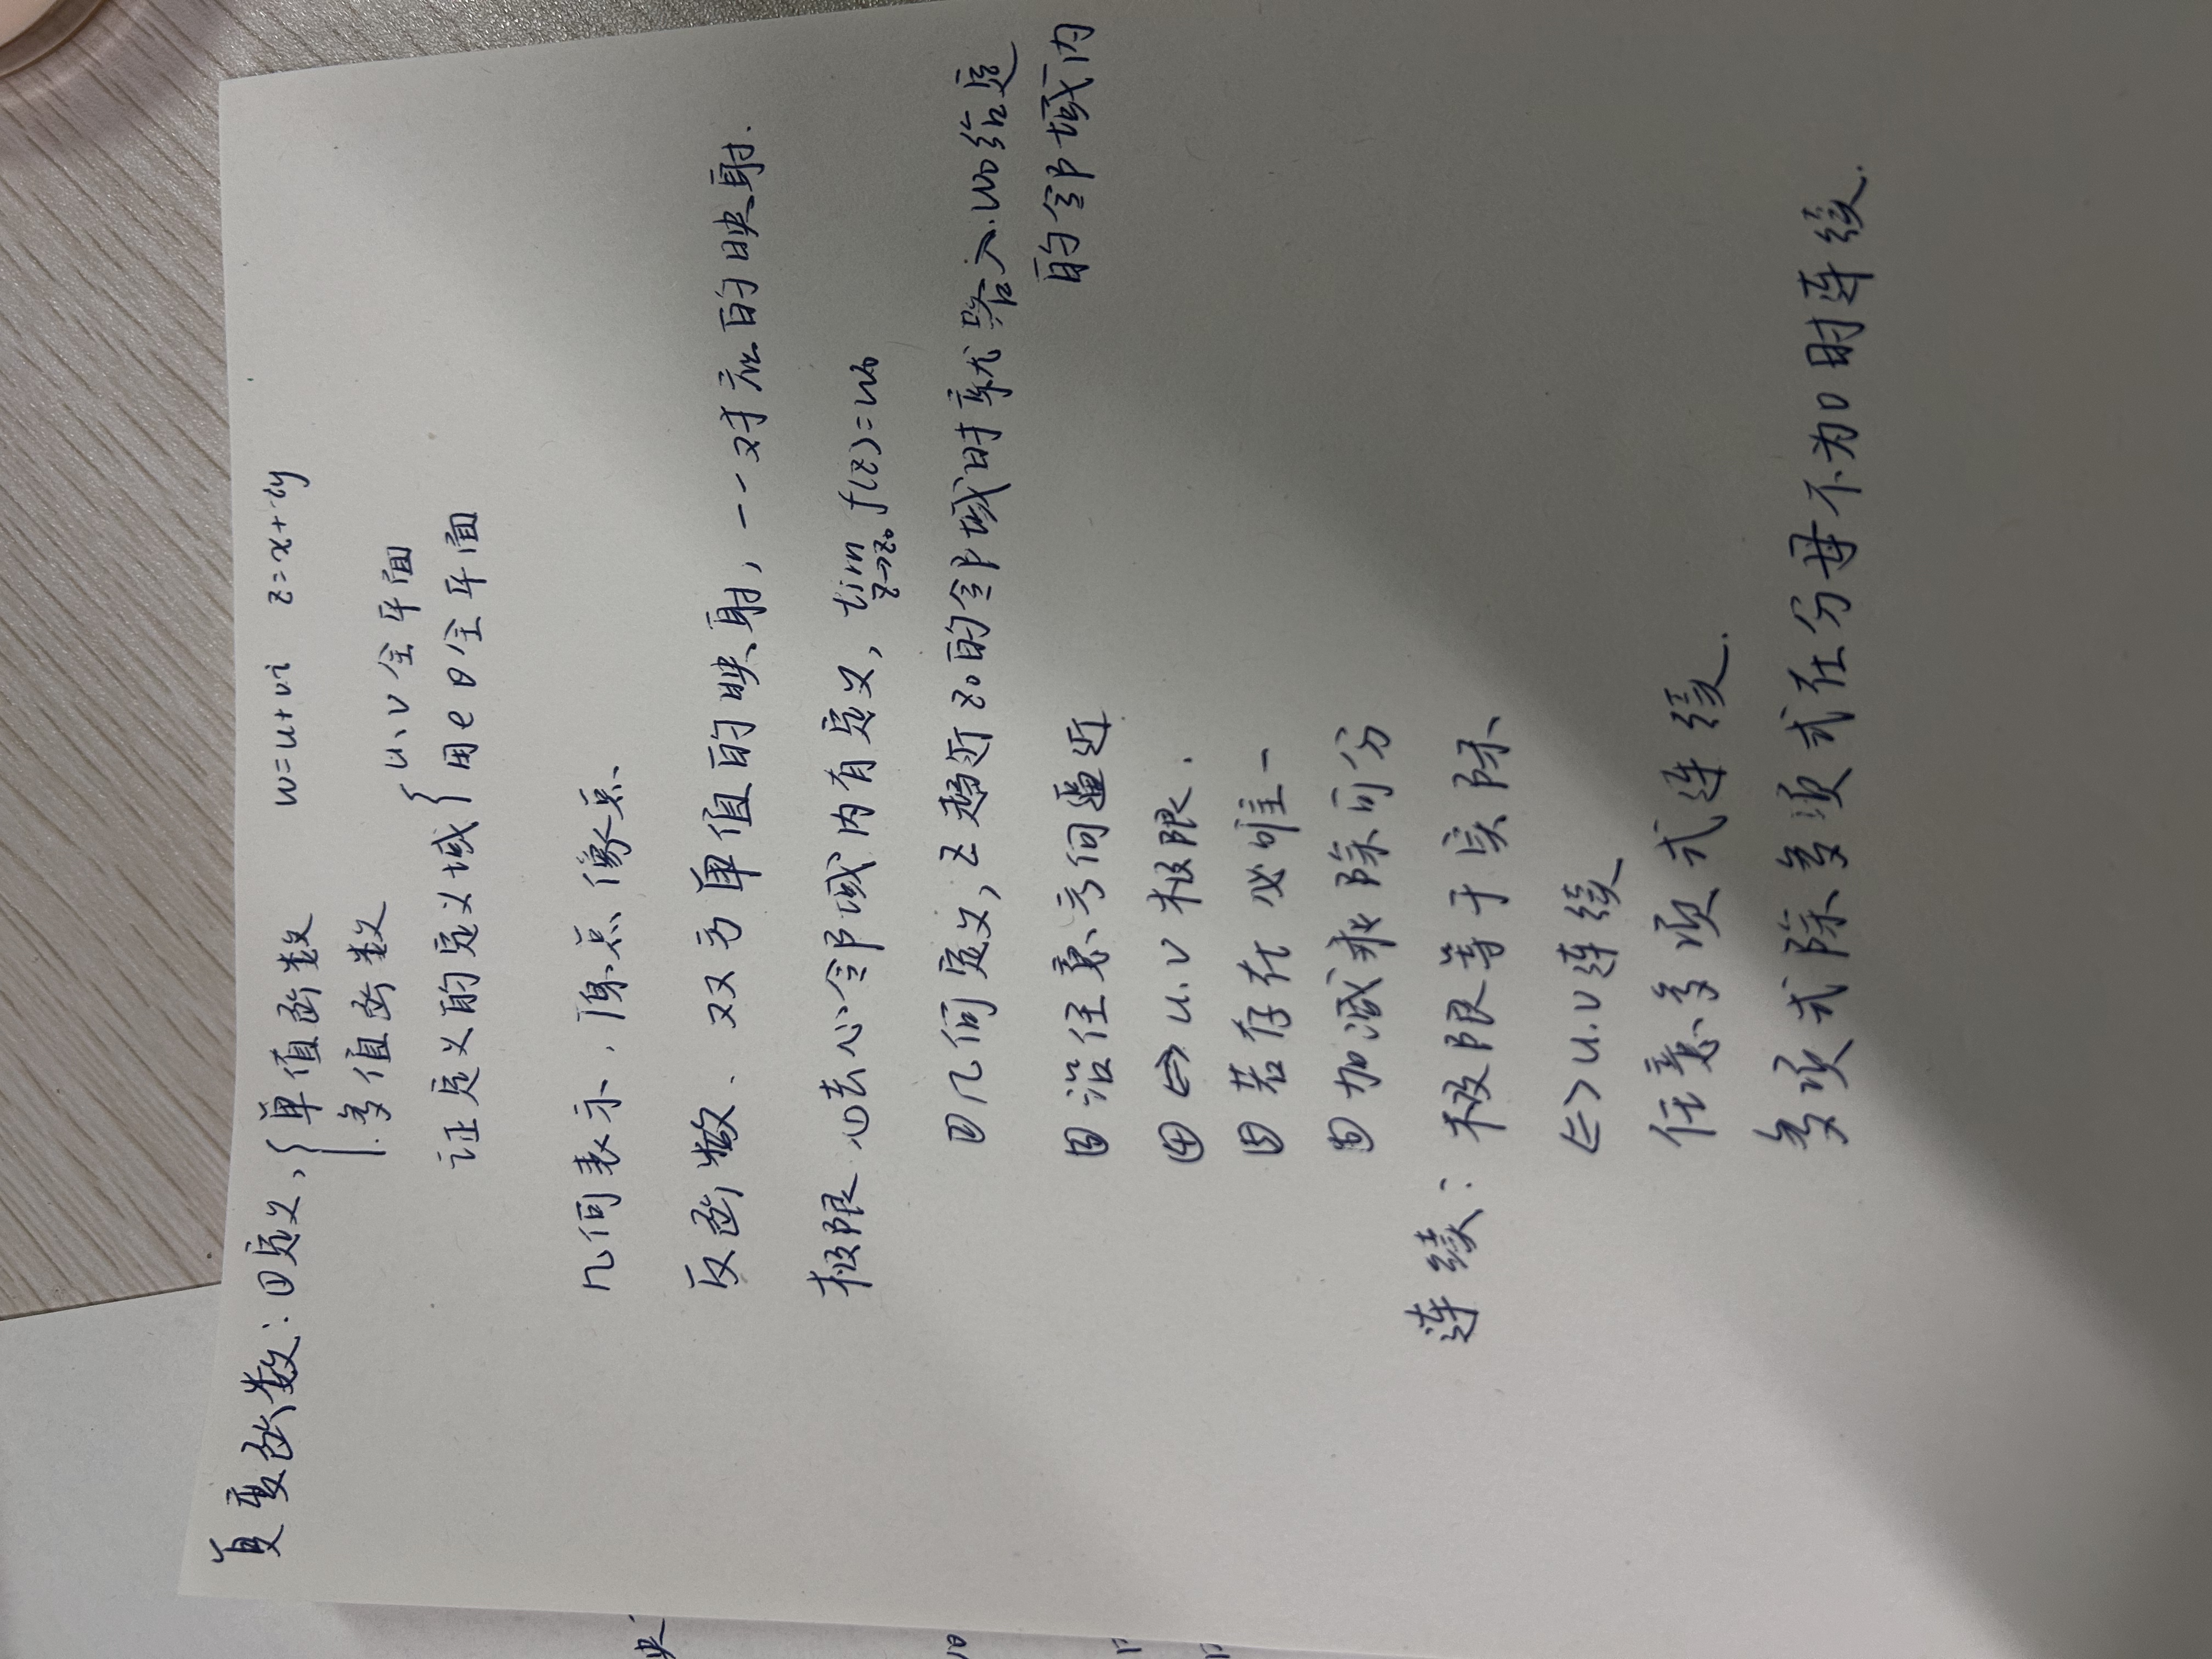 复变函数：①定义，{单值函数 w=u+vi z=x+iy
多值函数
证定义的定义域{u、v全平面
用e θ全平面
几何表示，原点 像点
反函数、双方单值的映射，一一对应的映射.
极限 ①去心邻域内有定义，lim z→z₀ f(z)=w₀
②几何定义，z趋近z₀的邻域时就落入w₀给定
的邻域内
③沿任意方向逼近
④⇔u.v极限.
⑤若存在 必唯一
⑥加减乘除可分
连续：极限等于实际
⇔u.v连续
任意多项式连续.
多项式除多项式在分母不为0时连续.